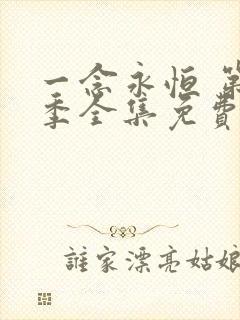 一念永恒 第
季全集免费
誰家漂亮姑娘